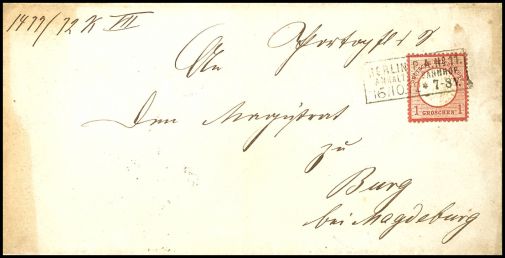 1479/72 K III
Portopfl. S
An
BERLIN P.A. No. 11.
ANHALT. BAHNHOF
16.10. * 7-8 V.
1 GROSCHEN 1
Den Magistrat
zu
Burg
bei Magdeburg